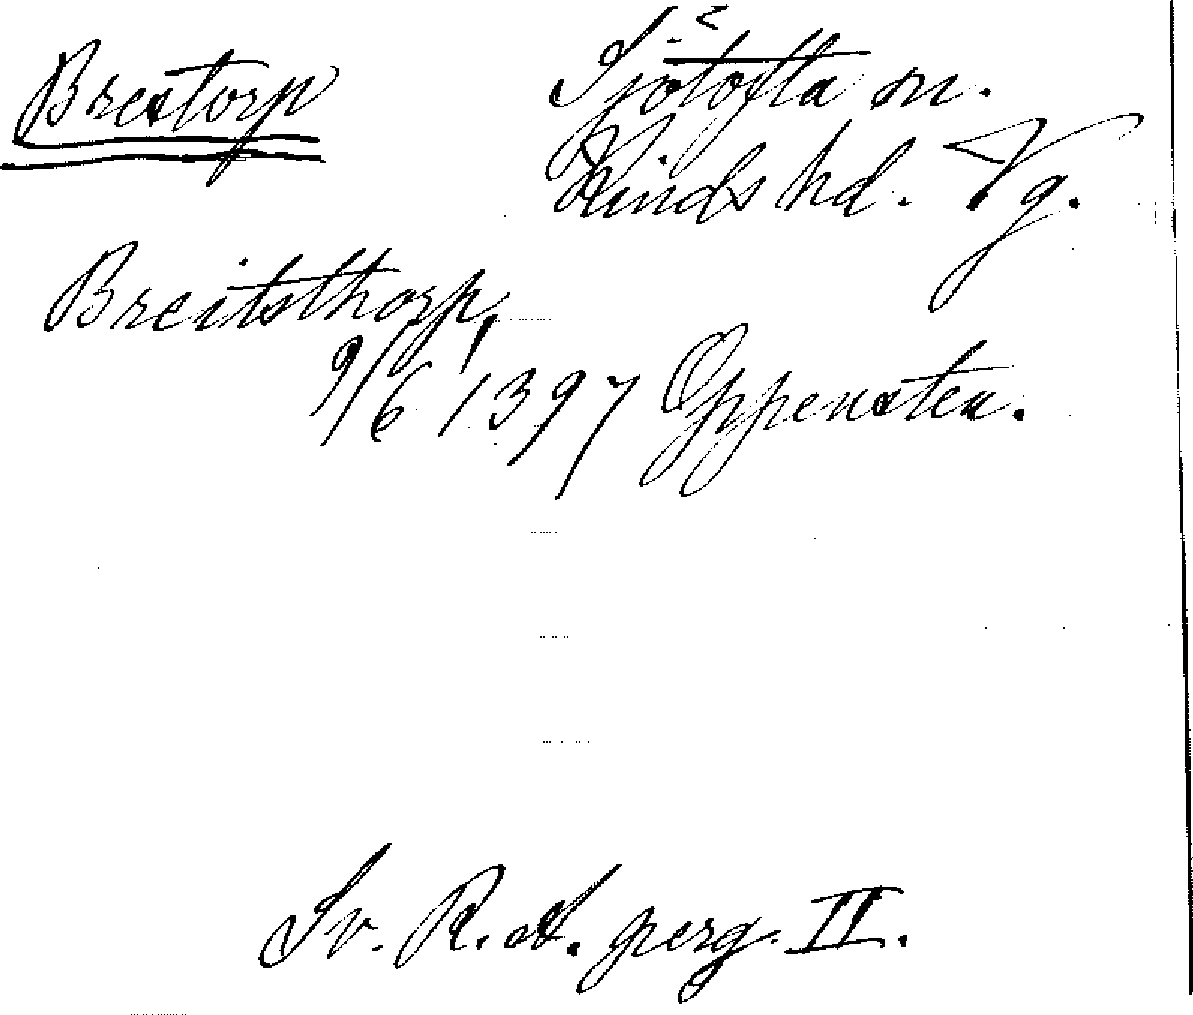 Brestorp
Sjötofta sn.
Kinds hd. Vg.
Breitsthorp,
9/6 1397 Oppensten.
Sv. R. A. perg. II.